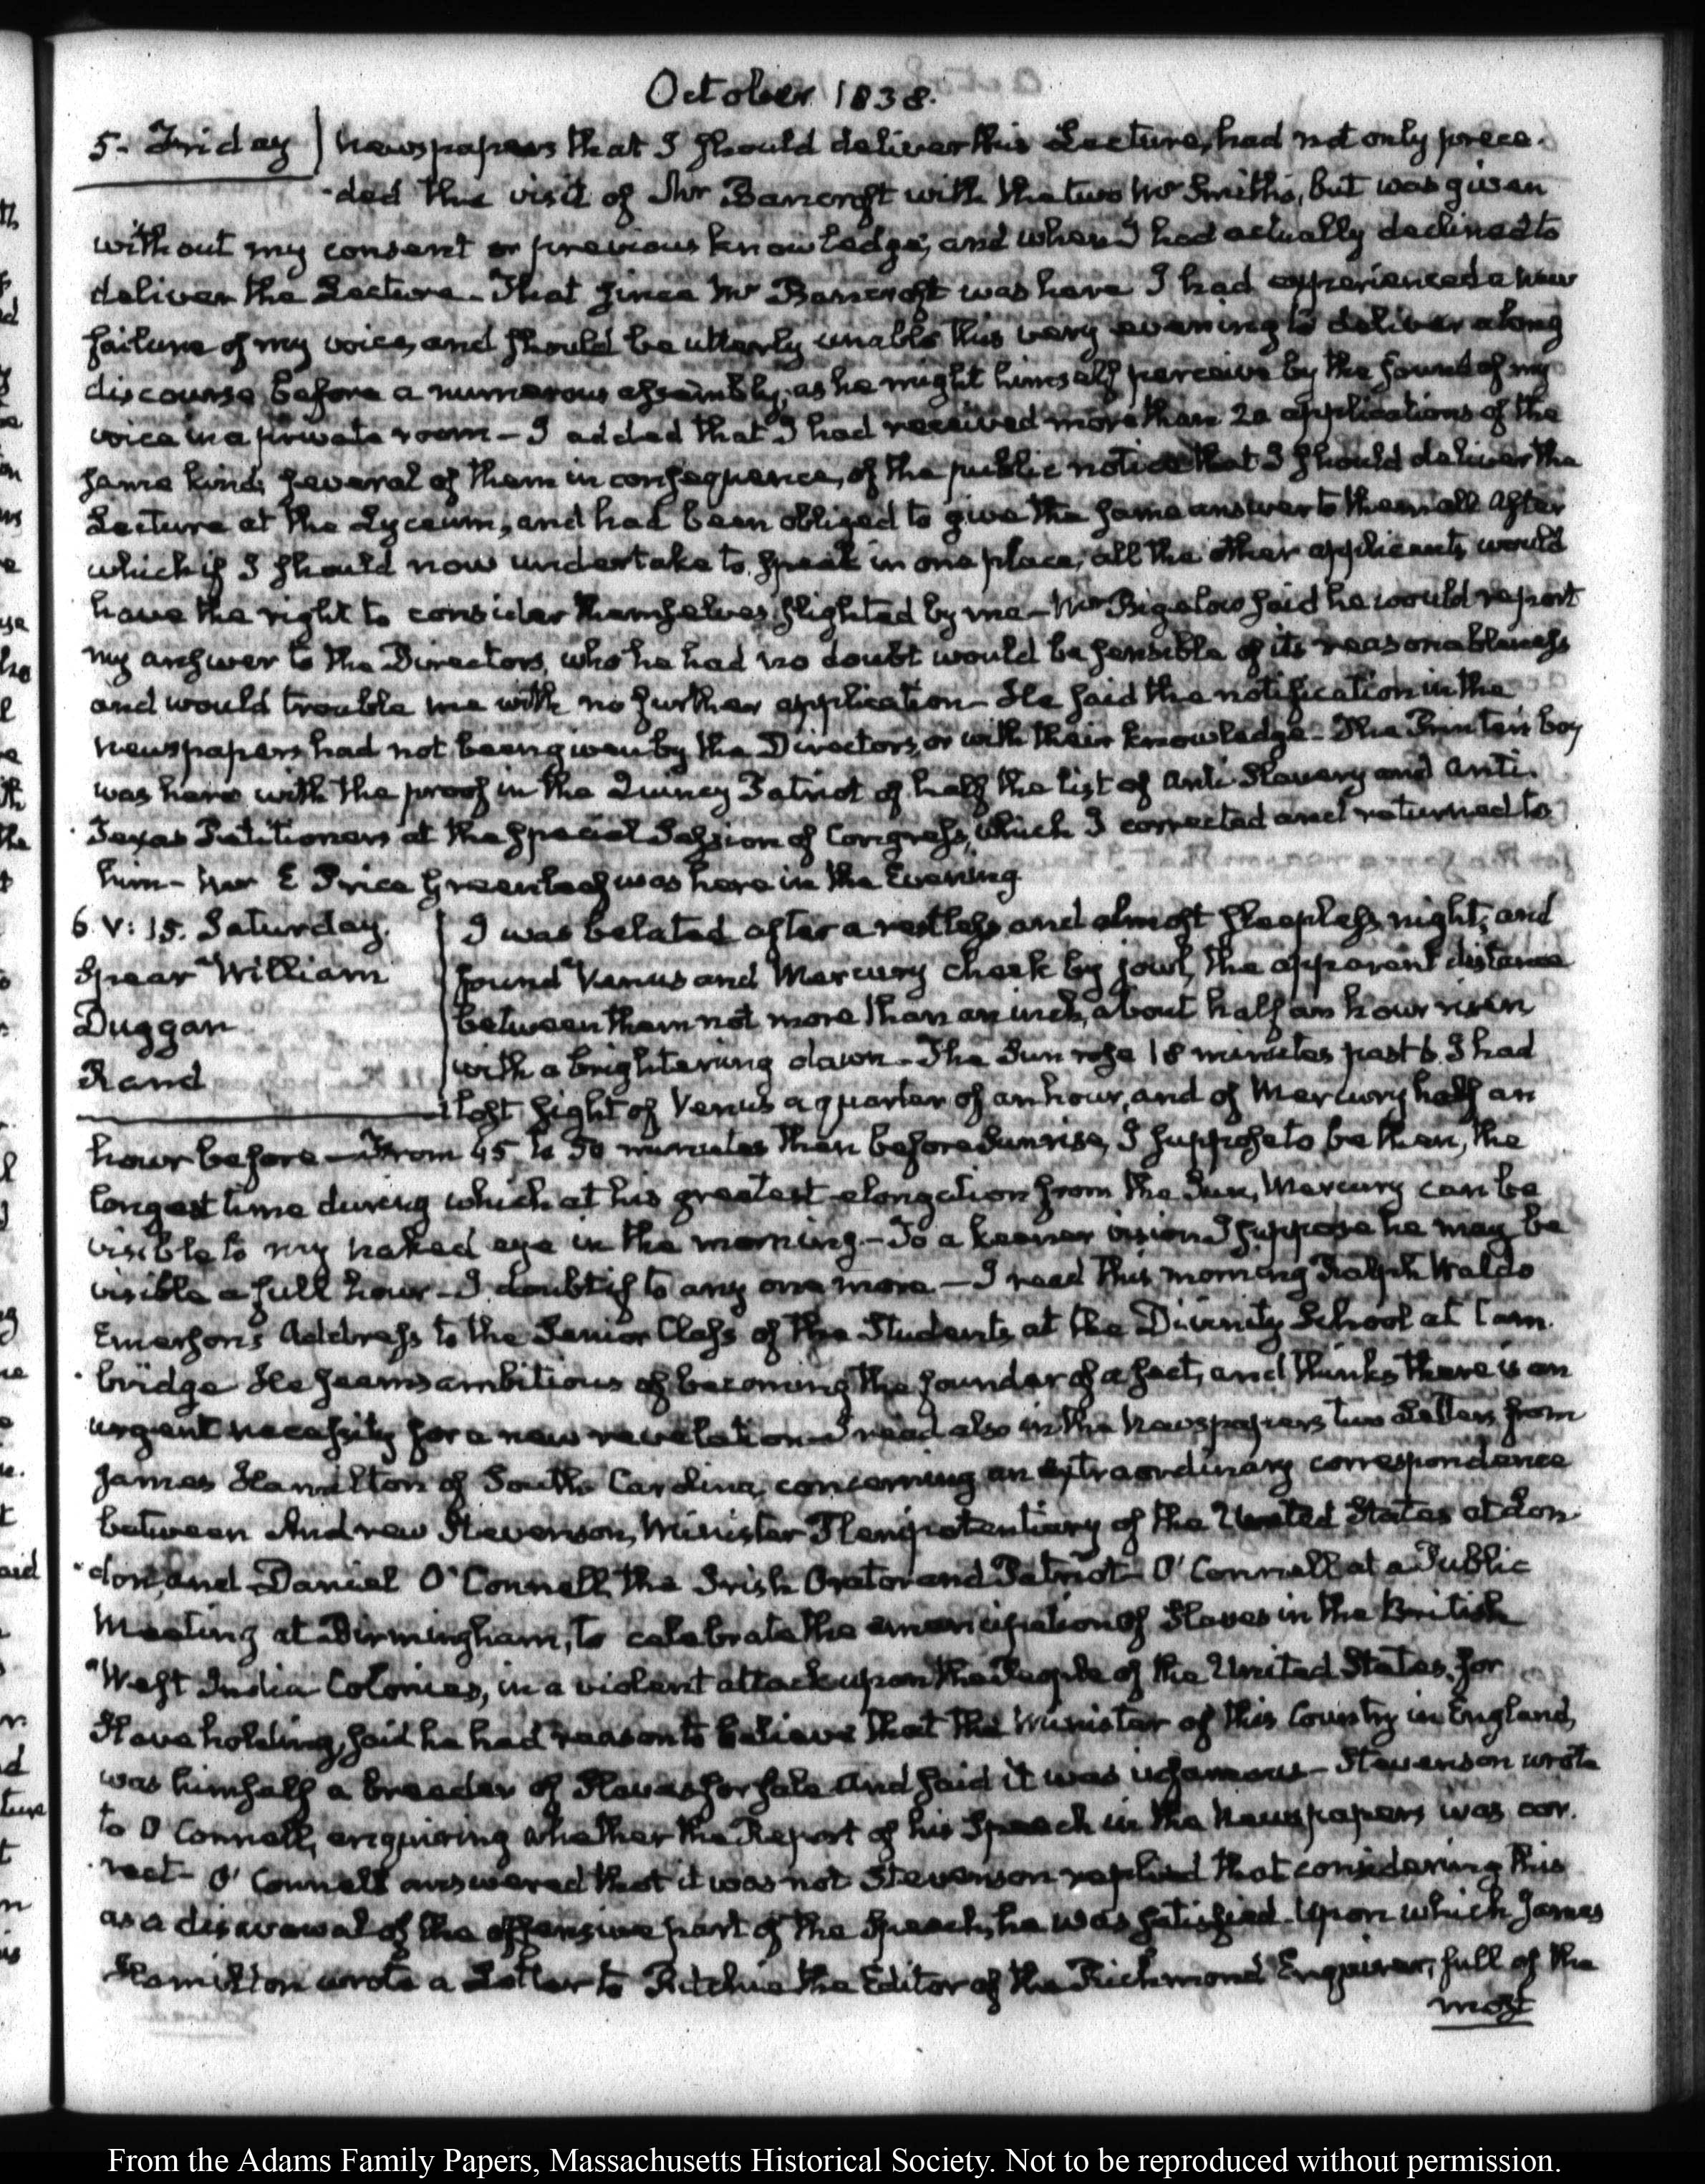 October 1838.
5. Friday
newspapers that I should deliver this Lecture, had not only prece-
-ded the visit of Mr Bancroft with the two Mr Smiths, but was given
without my consent or previous knowledge, and when I had actually declined to
deliver the Lecture. That since Mr Bancroft was here I had experienced a new
failure of my voice, and should be utterly unable this very evening to deliver a long
discourse before a numerous assembly, as he might himself perceive by the sound of my
voice in a private room - I added that I had received more than 20 applications of the
same kind, several of them in consequence, of the public notice that I should deliver the
Lecture at the Lyceum, and had been obliged to give the same answer to them all After
which if I should now undertake to speak in one place, all the other applicants would
have the right to consider themselves slighted by me - Mr Bigelow said he would report
my answer to the Directors, who he had no doubt would be sensible of its reasonableness
and would trouble me with no further application - He said the notification in the
newspapers had not been given by the Directors, or with their knowledge - The Printer's boy
was here with the proof in the Quincy Patriot of half the list of Anti-Slavery and Anti-
-Texas Petitioners at the Special Session of Congress, which I corrected and returned to
him - Mr E Price Greenleaf was here in the Evening
6. V: 15. Saturday.
Spear William
Duggan
Rand
I was belated after a restless and almost sleepless night, and
found Venus and Mercury cheek by jowl, the apparent distance
between them not more than an inch, about half an hour risen
with a brightening dawn - The Sun rose 18 minutes past 6. I had
lost sight of Venus a quarter of an hour, and of Mercury half an
hour before - From 45 to 50 minutes then before Sunrise, I suppose to be then, the
longest time during which at his greatest elongation from the Sun, Mercury can be
visible to my naked eye in the morning - To a keener vision I suppose he may be
visible a full hour - I doubt if to any one more - I read this morning Ralph Waldo
Emerson's Address to the Senior Class of the Students at the Divinity School at Cam-
-bridge He seems ambitious of becoming the founder of a sect, and thinks there is an
urgent necessity for a new revelation - I read also in the Newspapers two Letters from
James Hamilton of South Carolina, concerning an extraordinary correspondence
between Andrew Stevenson, Minister Plenipotentiary of the United States at Lon-
-don, and Daniel O'Connell, the Irish Orator and Patriot - O'Connell at a Public
Meeting at Birmingham, to celebrate the emancipation of Slaves in the British
West India Colonies, in a violent attack upon the People of the United States, for
Slave holding, said he had reason to believe that the Minister of this Country in England,
was himself a breeder of Slaves for sale and said it was infamous - Stevenson wrote
to O'Connell, enquiring whether the Report of his Speech in the Newspapers was cor-
-rect - O'Connell answered that it was not. Stevenson replied that considering this
as a disavowal of the offensive part of the Speech, he was satisfied - Upon which James
Hamilton wrote a Letter to Ritchie the Editor of the Richmond Enquirer, full of the
most
From the Adams Family Papers, Massachusetts Historical Society. Not to be reproduced without permission.